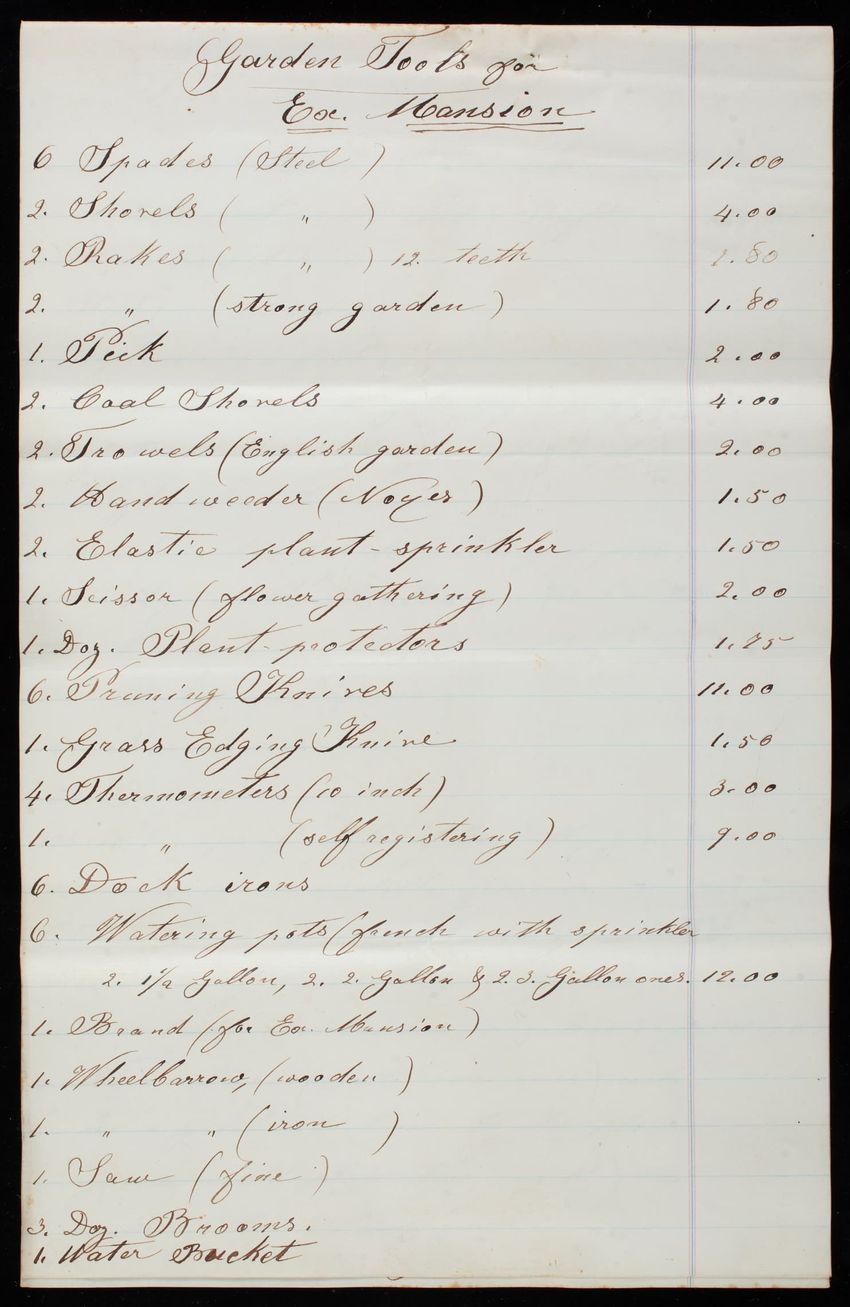 Garden Tools for
Ex. Mansion
6 Spades (Steel) 11.00
2. Shovels ( " ) 4.00
2. Rakes ( " ) 12. teeth 1.80
2. " (strong garden) 1.80
1. Pick 2.00
2. Coal Shovels 4.00
2. Trowels (English garden) 2.00
2. Hand weeder (Noyes) 1.50
2. Elastic plant-sprinkler 1.50
1. Scissor (flower gathering) 2.00
1. Doz. Plant-protectors 1.75
6. Pruning Knives 11.00
1. Grass Edging Knive 1.50
4. Thermometers (10 inch) 3.00
1. " (self registering) 9.00
6. Dock irons
6. Watering pots (french with sprinkler
2. 1/2 Gallon, 2. 2. Gallon & 2. 3. Gallon ones. 12.00
1. Brand (for Ex. Mansion)
1. Wheelbarrow, (wooden)
1. " " (iron)
1. Saw (fine)
3. Doz. Brooms.
1. Water Bucket